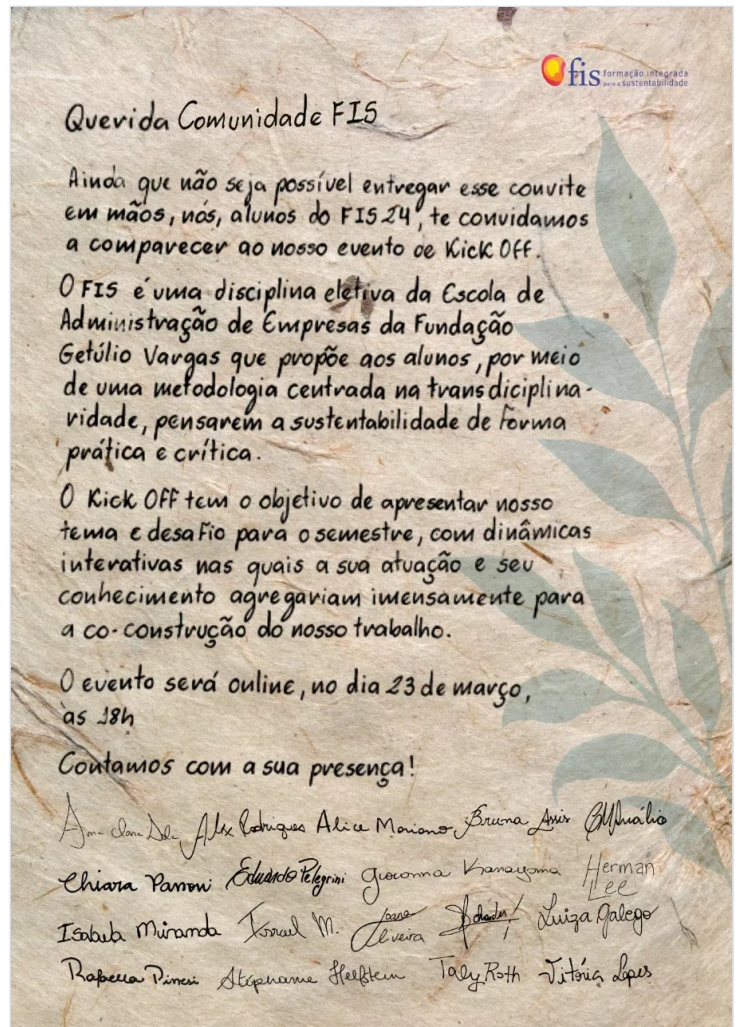 fis formação integrada
para a sustentabilidade
Querida Comunidade FIS
Ainda que não seja possível entregar esse convite
em mãos, nós, alunos do FIS 24, te convidamos
a comparecer ao nosso evento de Kick Off.
O FIS é uma disciplina eletiva da Escola de
Administração de Empresas da Fundação
Getúlio Vargas que propõe aos alunos, por meio
de uma metodologia centrada na transdiciplina-
ridade, pensarem a sustentabilidade de forma
prática e crítica.
O Kick Off tem o objetivo de apresentar nosso
tema e desafio para o semestre, com dinâmicas
interativas nas quais a sua atuação e seu
conhecimento agregariam imensamente para
a co-construção do nosso trabalho.
O evento será online, no dia 23 de março,
às 18h
Contamos com a sua presença!
Ana Clara Alex Rodrigues Alice Mariano Bruna Assis
Chiara Eduardo Pelegrini Giovanna Kanayama Herman
Lee
Isabela Miranda Israel M. Joana Oliveira Luiza Galego
Rafaella Stephanie Helfstein Taly Roth Vitória Lopes